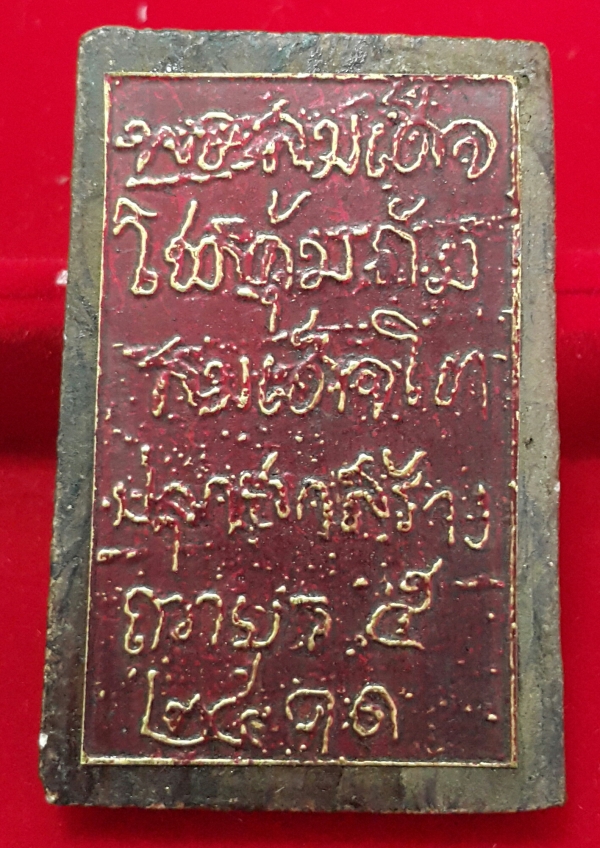 พระสมเด็จ
โชคุ้มภัย
สมเด็จโต
ปลุกเสกสร้าง
ถวาย ร ๕
๒๔๑๑